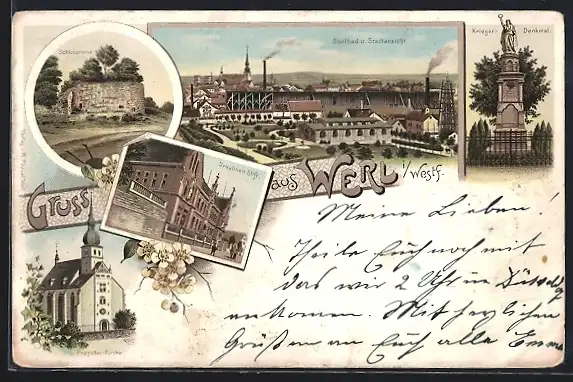 Schlossruine
Soolbad u. Stadtansicht
Krieger-Denkmal.
Ursulinen Stift.
Gruss aus WERL i/Westf.
Propstei-Kirche
Meine Lieben!
Theile Euch noch mit
das wir 2 Uhr in Düsseldg
ankommen. Mit herzlichen
Grüßen an Euch alle Emma